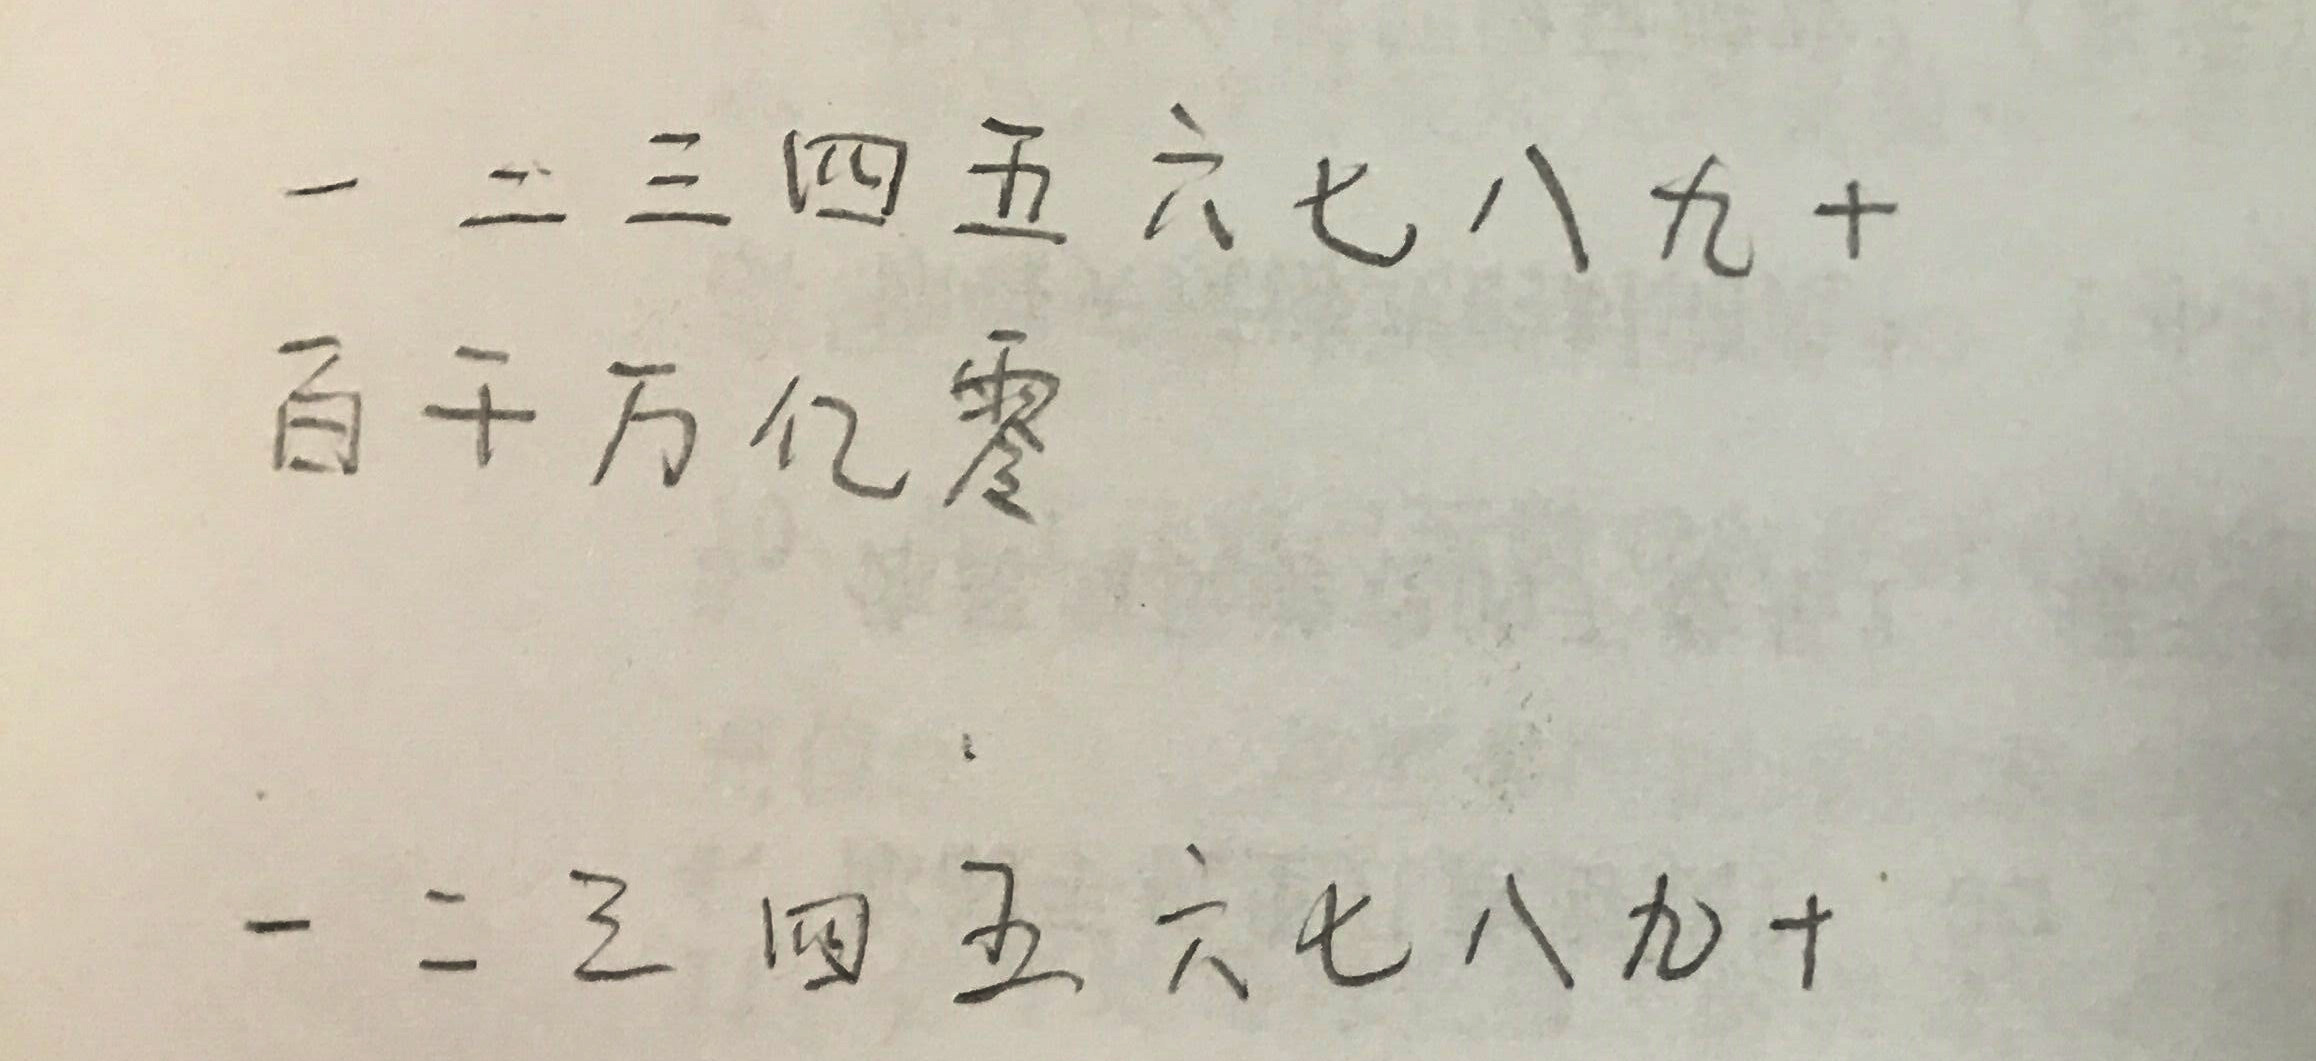 一二三四五六七八九十
百千万亿零
一二三四五六七八九十